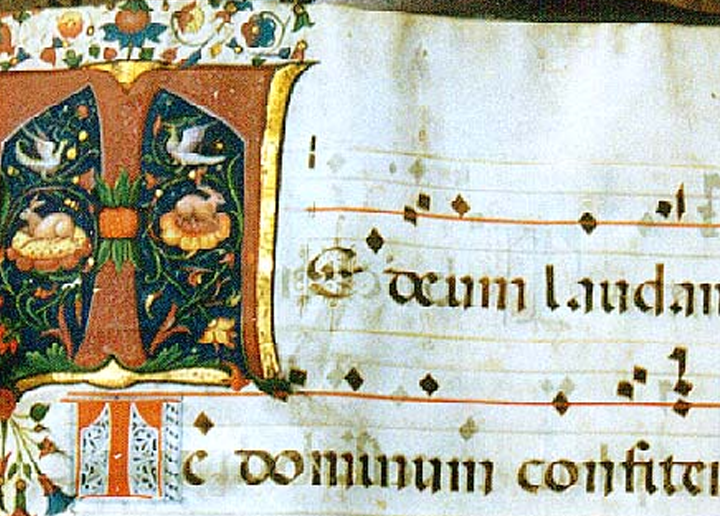 TE deum laudam
Te dominum confitem